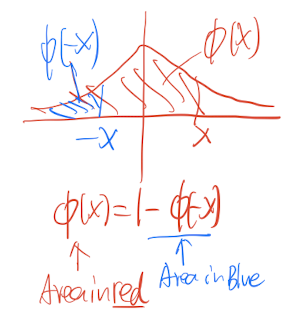 ϕ(-x) ϕ(x)
-x x
ϕ(x) = 1 - ϕ(-x)
Area in red Area in Blue